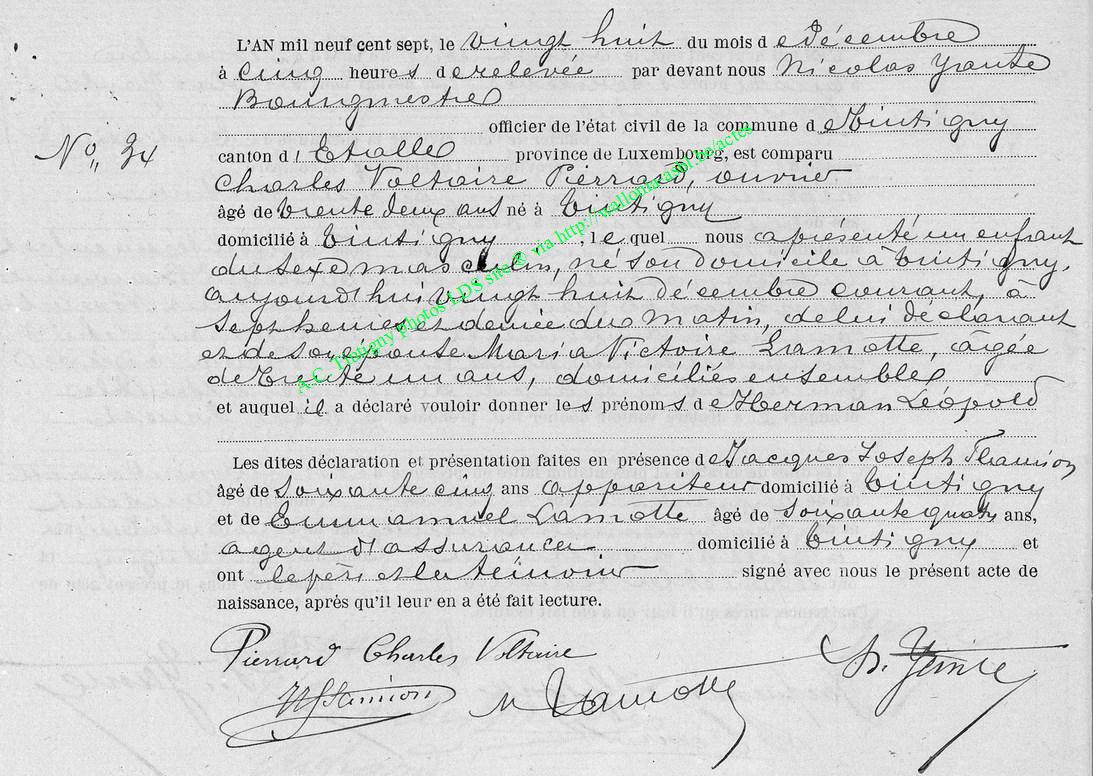 L'AN mil neuf cent sept, le vingt huit du mois d e Décembre
à Cinq heures de relevée par devant nous Nicolas Yante
Bourgmestre
officier de l'état civil de la commune d e Tintigny
No 34
canton d' Etalle province de Luxembourg, est comparu
Charles Voltaire Pierrard, ouvrier
âgé de trente deux ans né à Tintigny
domicilié à Tintigny , le quel nous a présenté un enfant
du sexe masculin, né son domicile à Tintigny,
aujourd'hui vingt huit décembre courant, à
sept heures et demie du matin, de lui déclarant
et de son épouse Maria Victoire Lamotte, âgée
de trente un ans, domiciliés ensemble
et auquel il a déclaré vouloir donner les prénoms de Herman Léopold
Les dites déclaration et présentation faites en présence de Jacques Joseph
âgé de soixante cinq ans appariteur domicilié à Tintigny
et de Emmanuel Lamotte âgé de soixante quatre ans,
agent d'assurances domicilié à Tintigny et
ont le père et les témoins signé avec nous le présent acte de
naissance, après qu'il leur en a été fait lecture.
Pierrard Charles Voltaire
Lamotte
A.C. Tintigny photos LDS site © via http://wallonia.asbl.be/actes